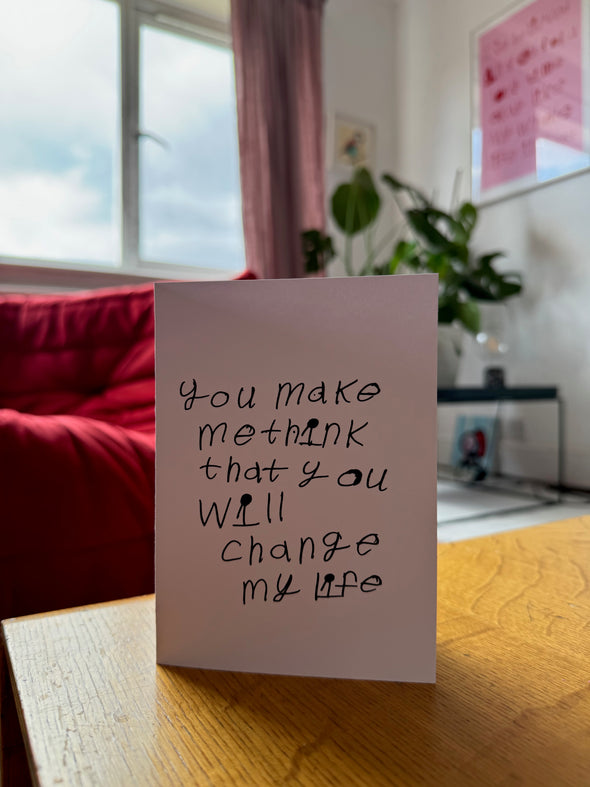 you make
me think
that you
will
change
my life